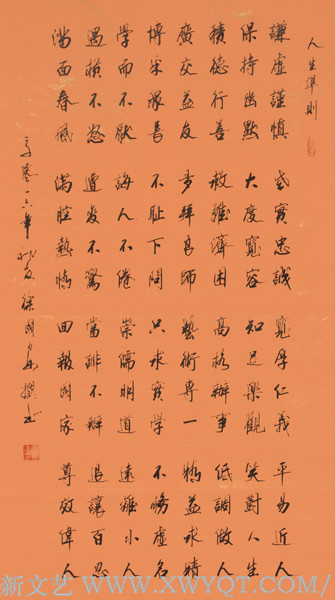 人生準則
謙虛謹慎 老實忠誠 寬厚仁義 平易近人
保持幽默 大度寬容 知足樂觀 笑對人生
積德行善 救難濟困 高格辦事 低調做人
廣交益友 多拜良師 藝術專一 精益求精
博采眾長 不恥下問 只求實學 不務虛名
學而不厭 誨人不倦 崇儒明道 遠離小人
遇橫不怒 遭變不驚 當誹不辯 退讓百忍
滿面春風 滿腔熱情 回報國家 尊效偉人
一六年 徐國 撰书
新文艺 WWW.XWYQT.COM